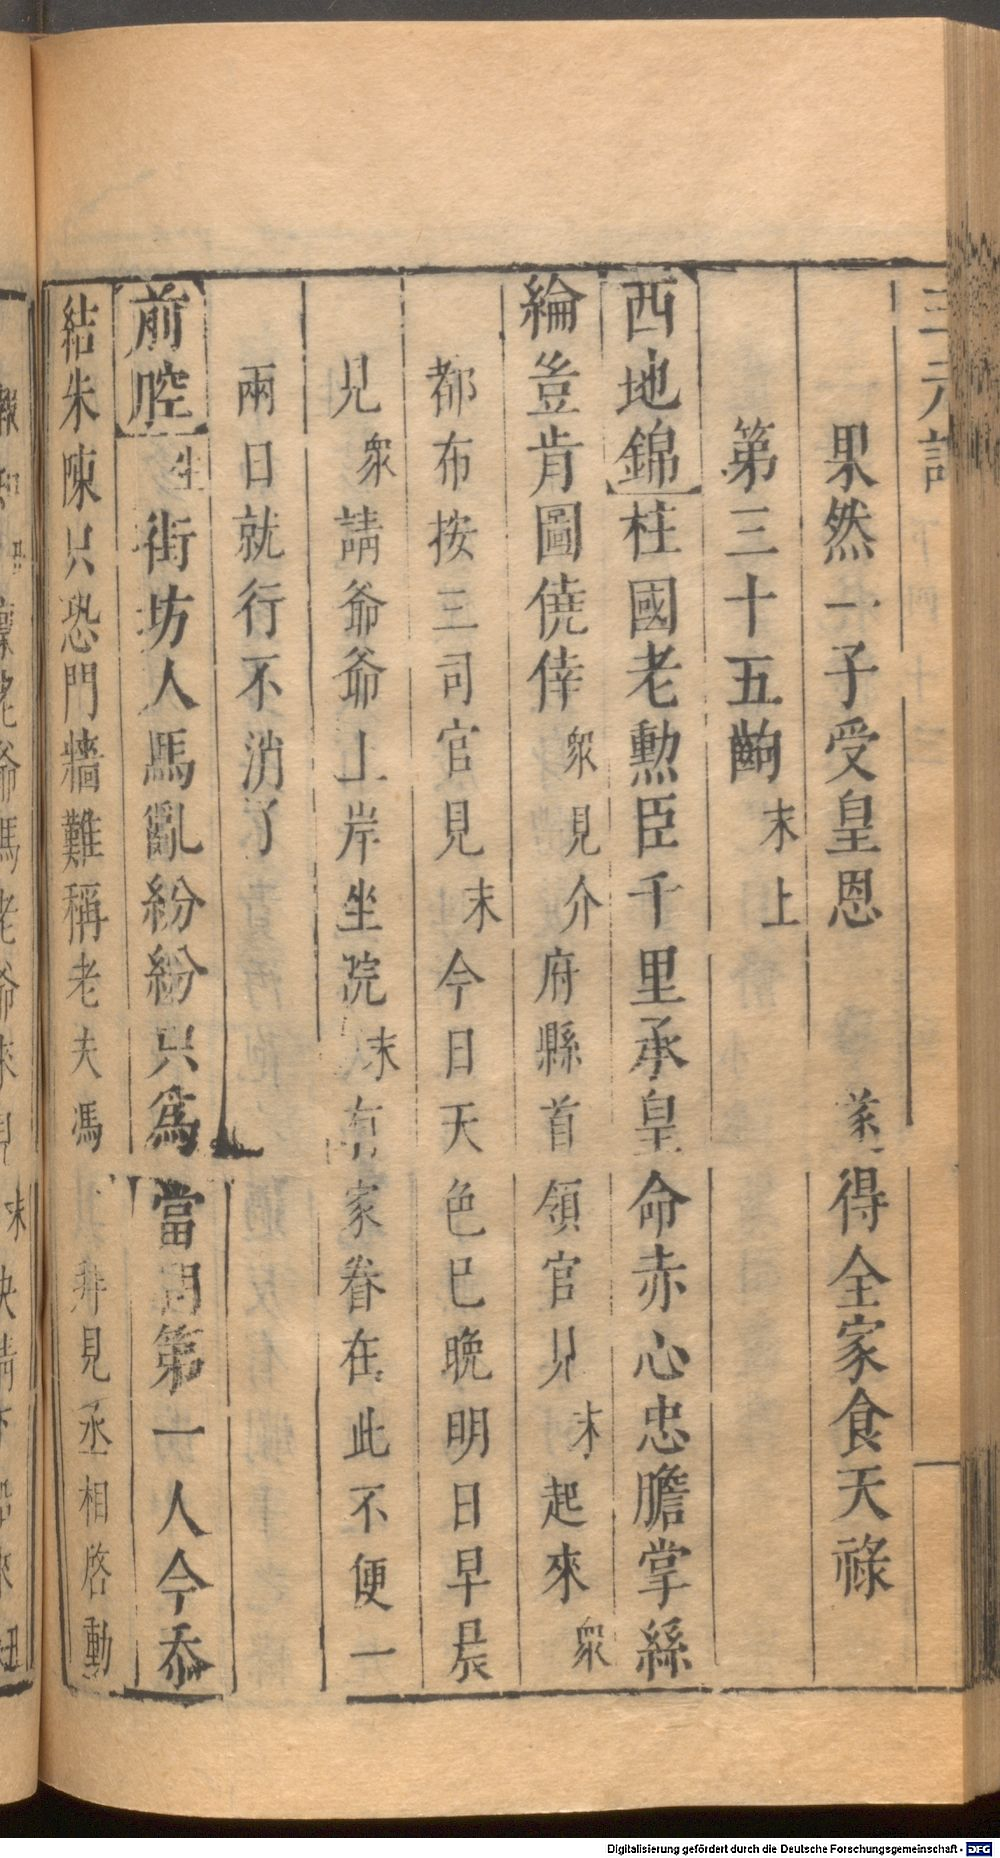 三元記
果然一子受皇恩　遂得全家食天祿
第三十五齣 末上
西地錦 柱國老勲臣千里承皇命赤心忠膽掌絲
綸豈肯圖僥倖 衆見介 府縣首領官見 末 起來 衆
都布按三司官見 末 今日天色巳晚明日早晨
見 衆 請爺爺上岸坐院 末 有家眷在此不便一
兩日就行不消了
前腔 生 街坊人馬亂紛紛只爲當朝第一人今忝
結朱陳只恐門牆難稱老夫馮 拜見丞相啓動
Digitalisierung gefördert durch die Deutsche Forschungsgemeinschaft - DFG